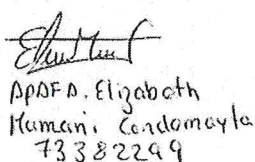 APAFA. Elizabeth
Mamani Condomayta
73382299